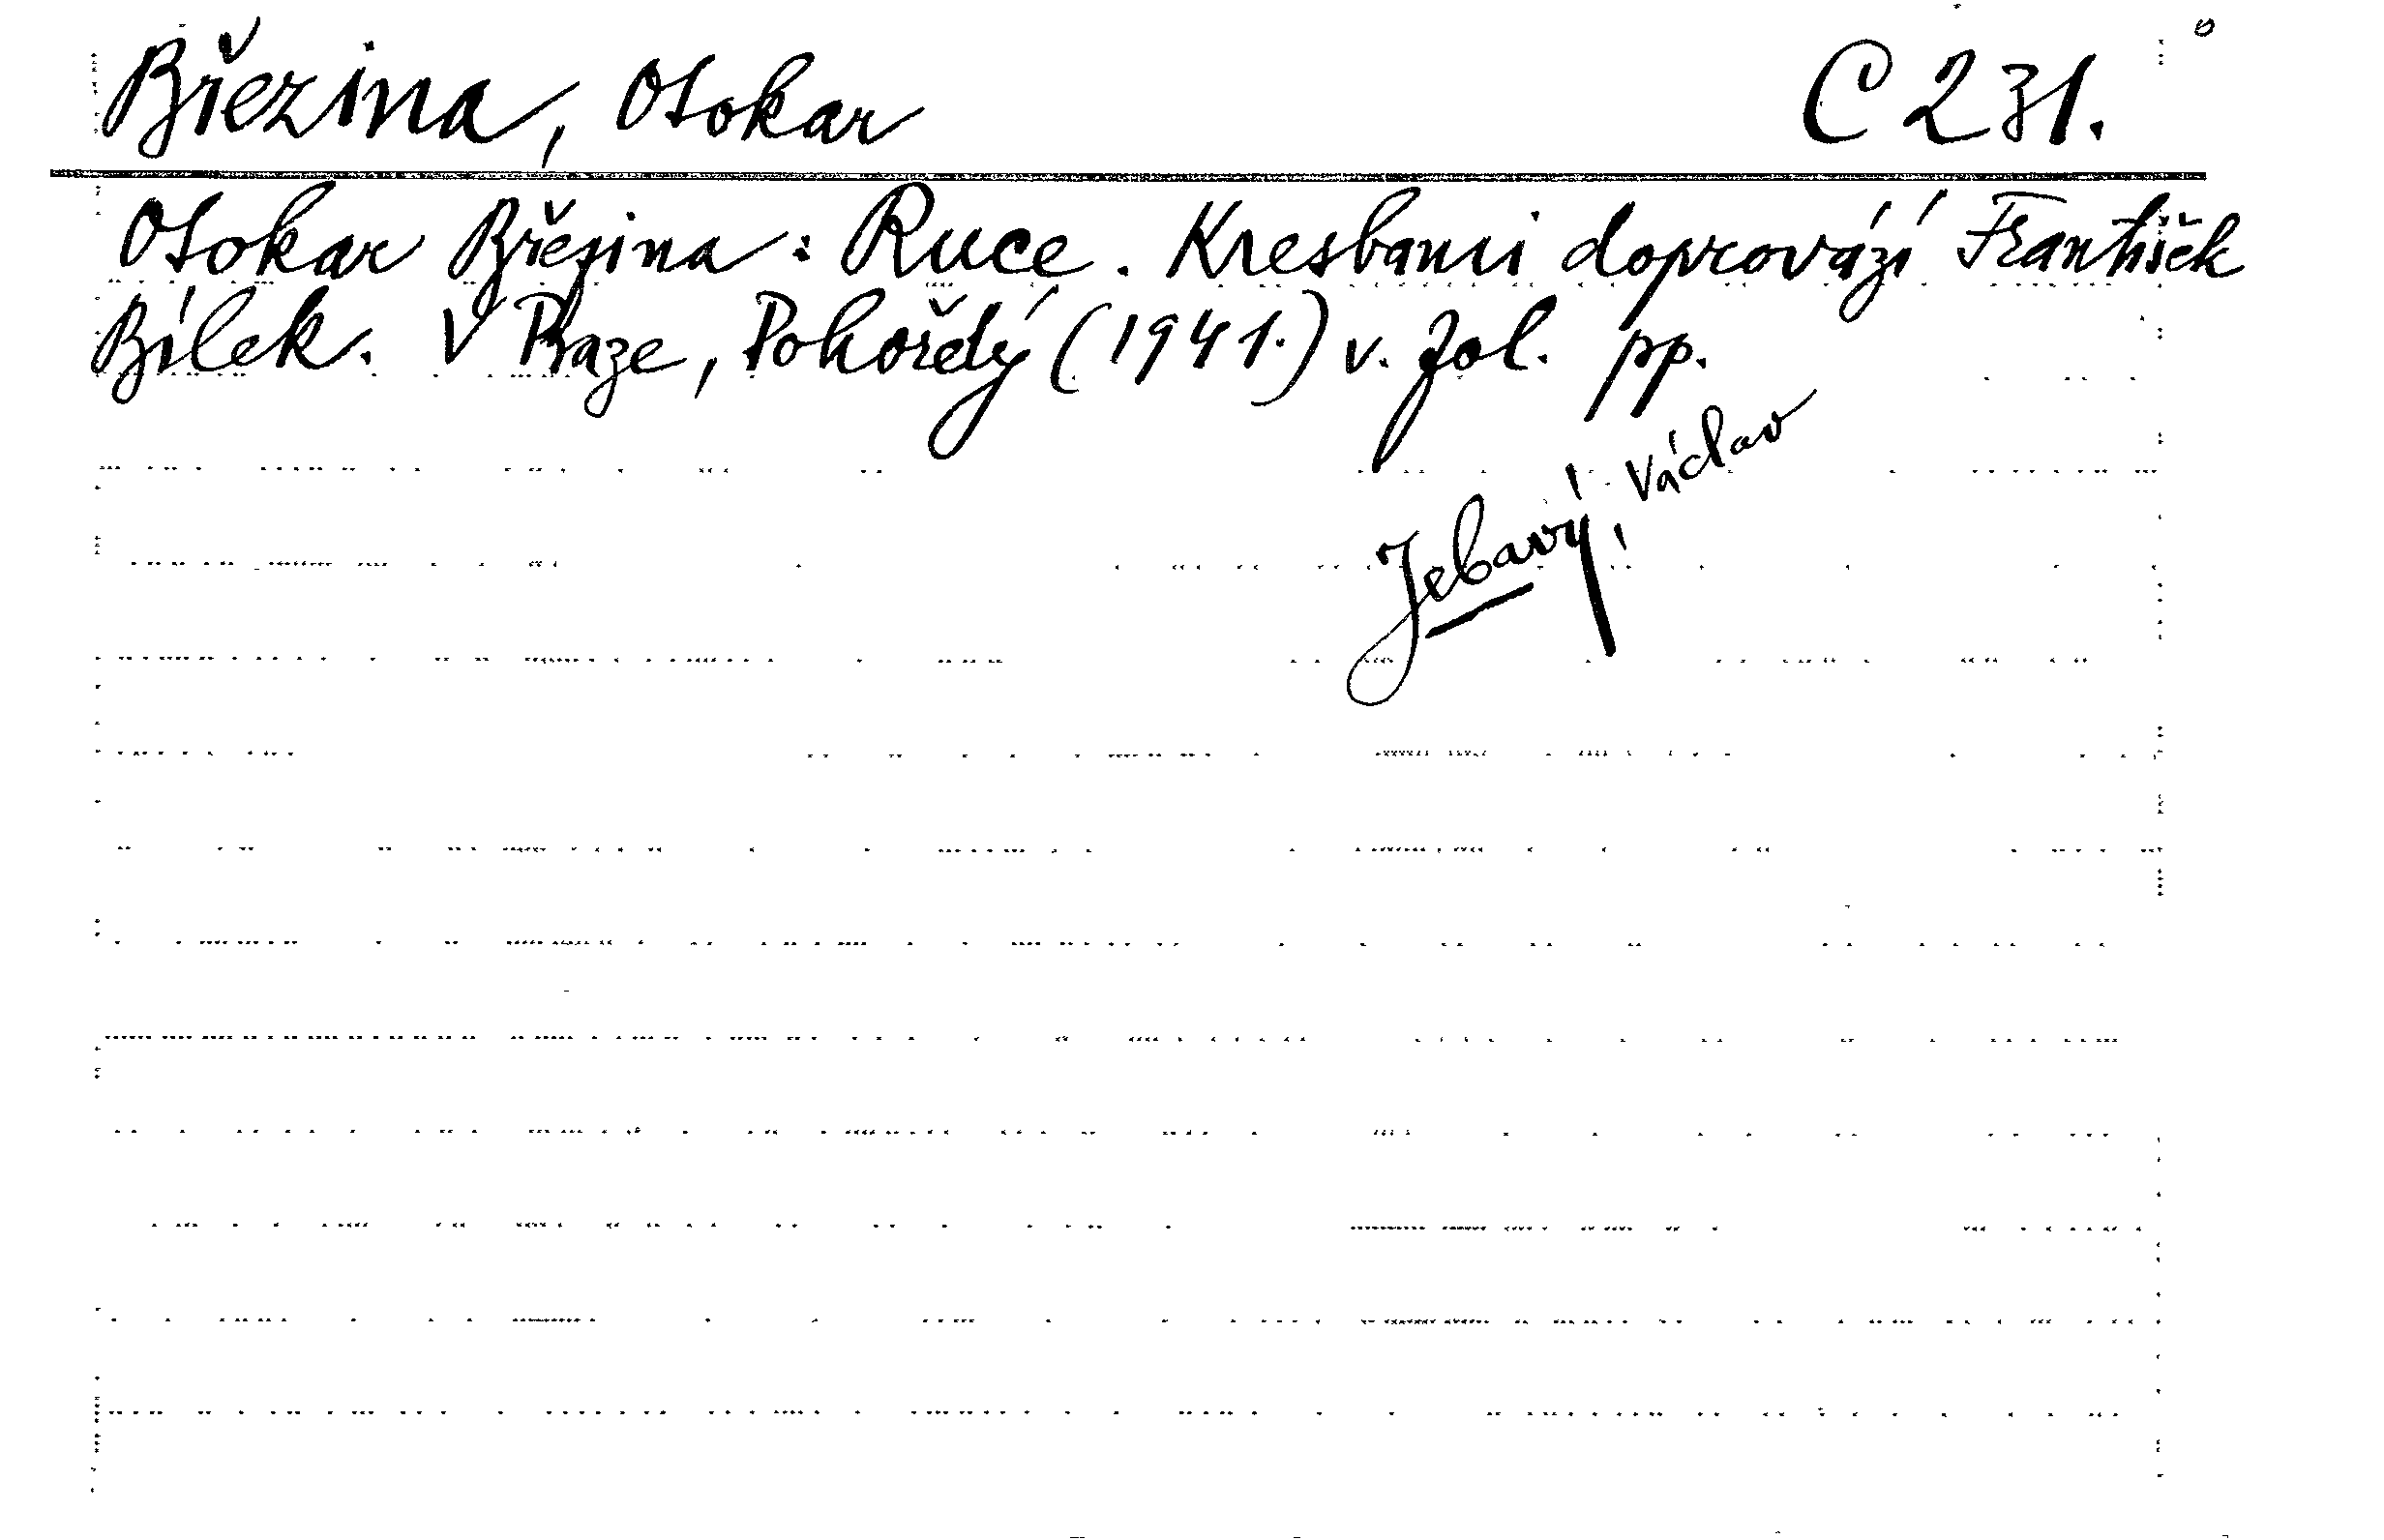 Březina, Otokar C 231.
Otokar Březina: Ruce. Kresbami doprovází František
Bílek. V Praze, Pohořelý (1941.) v. fol. pp.
Jebavý, Václav